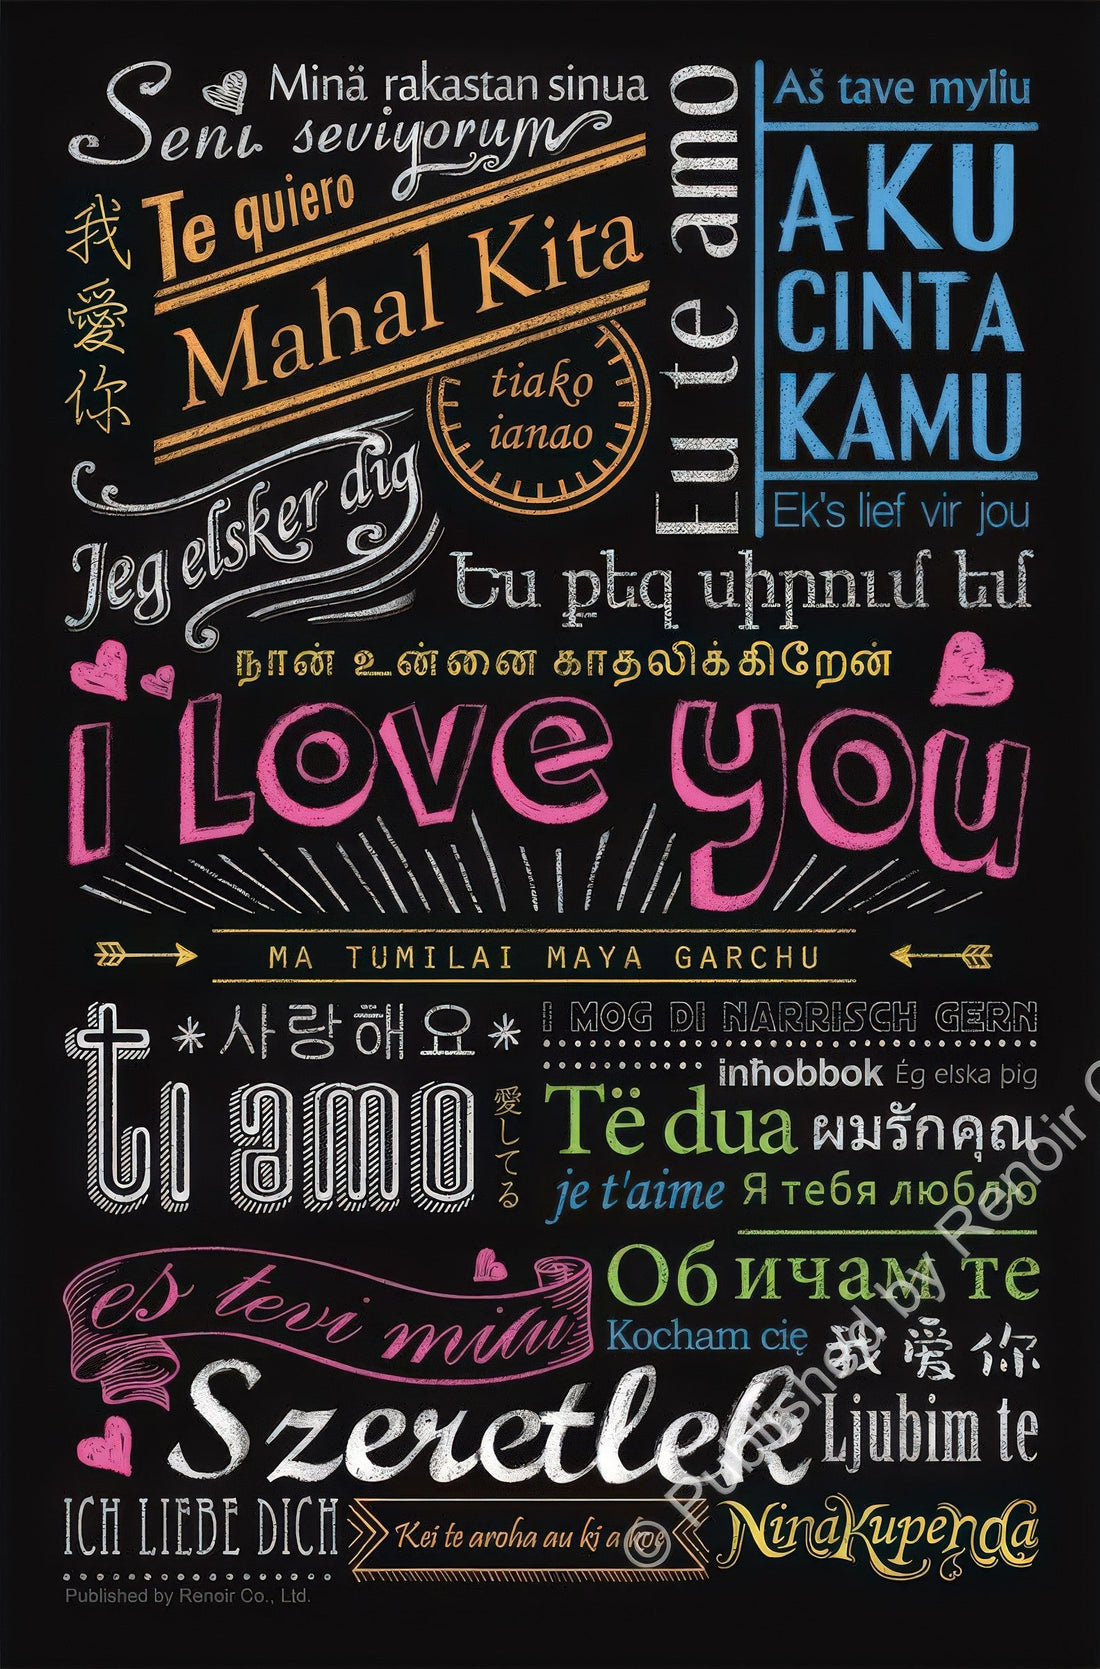 Minä rakastan sinua
Seni seviyorum
Te quiero
Mahal Kita
我愛你
tiako
ianao
Eu te amo
Aš tave myliu
AKU
CINTA
KAMU
Ek's lief vir jou
Jeg elsker dig
Ես քեզ սիրում եմ
நான் உன்னை காதலிக்கிறேன்
i Love you
MA TUMILAI MAYA GARCHU
ti amo
사랑해요
愛してる
I MOG DI NARRISCH GERN
inħobbok
Ég elska þig
Të dua
ผมรักคุณ
je t'aime
Я тебя люблю
Обичам те
es tevi mīlu
Kocham cię
我爱你
Szeretlek
Ljubim te
ICH LIEBE DICH
Kei te aroha au ki a koe
Nina Kupenda
Published by Renoir Co., Ltd.
© Published by Renoir